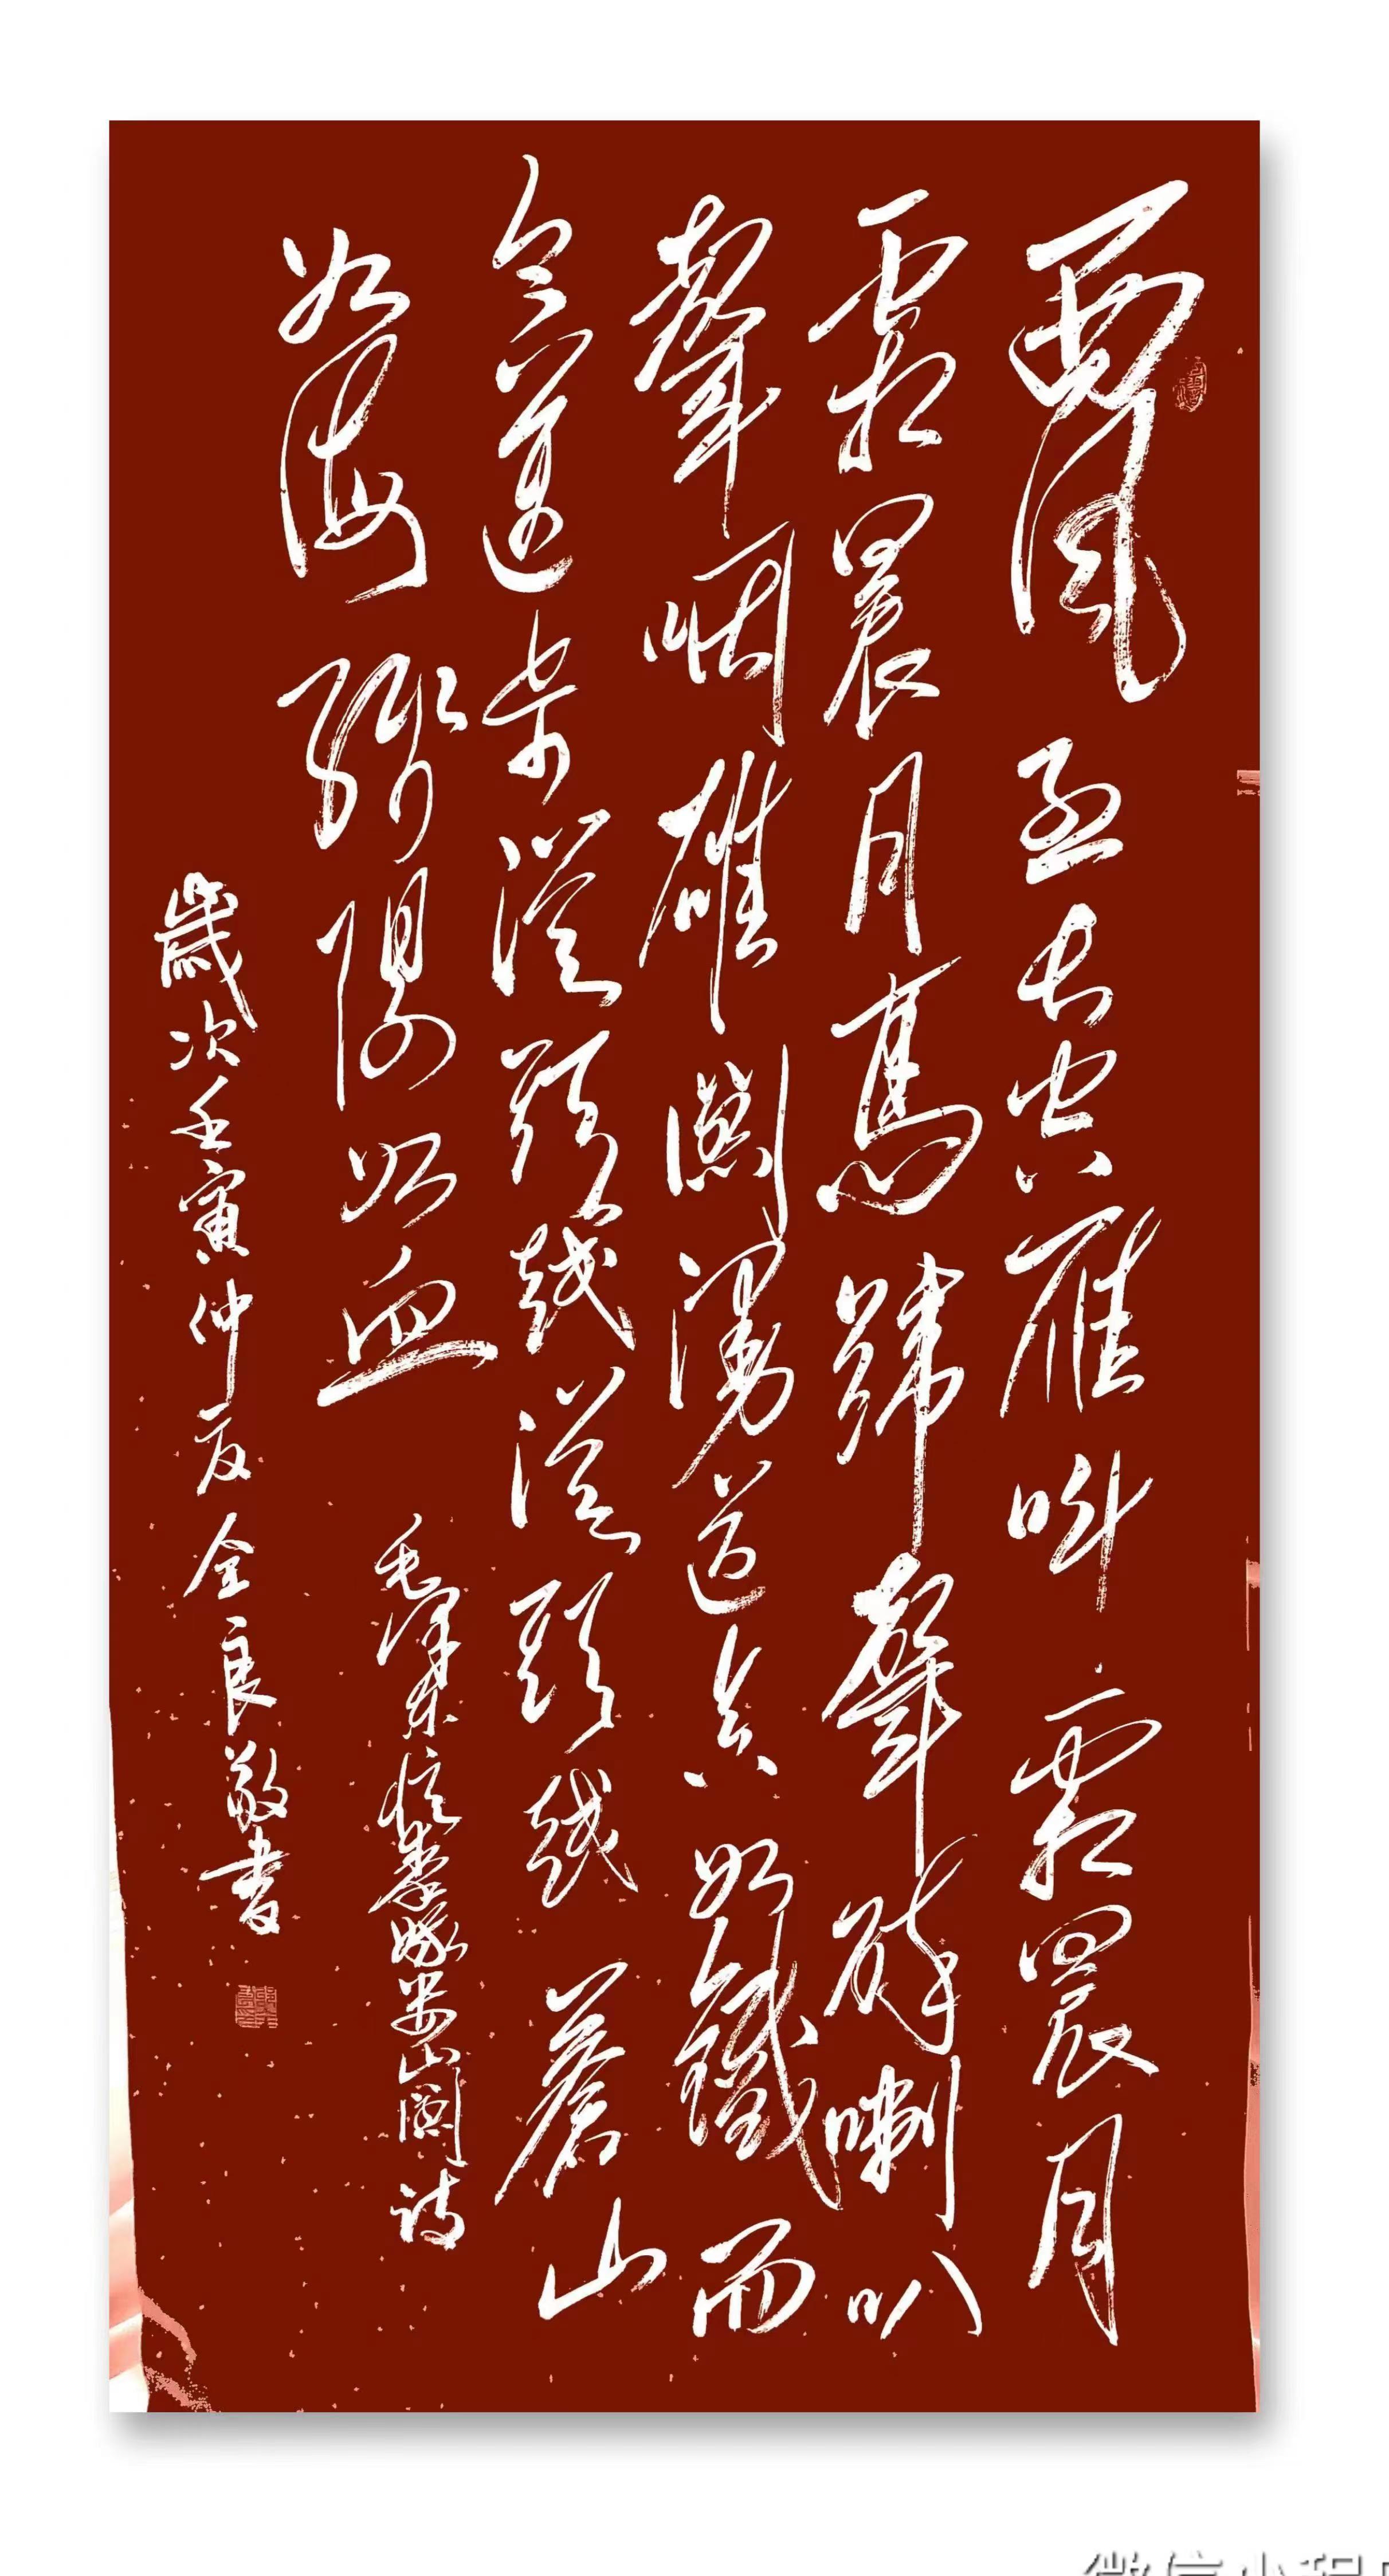 西風烈長空雁叫霜晨月
霜晨月馬蹄聲碎喇叭
聲咽雄關漫道真如鐵而
今邁步從頭越從頭越蒼山
如海殘陽如血
毛澤東憶秦娥婁山關詩
歲次壬寅仲夏全良敬書
微信小程